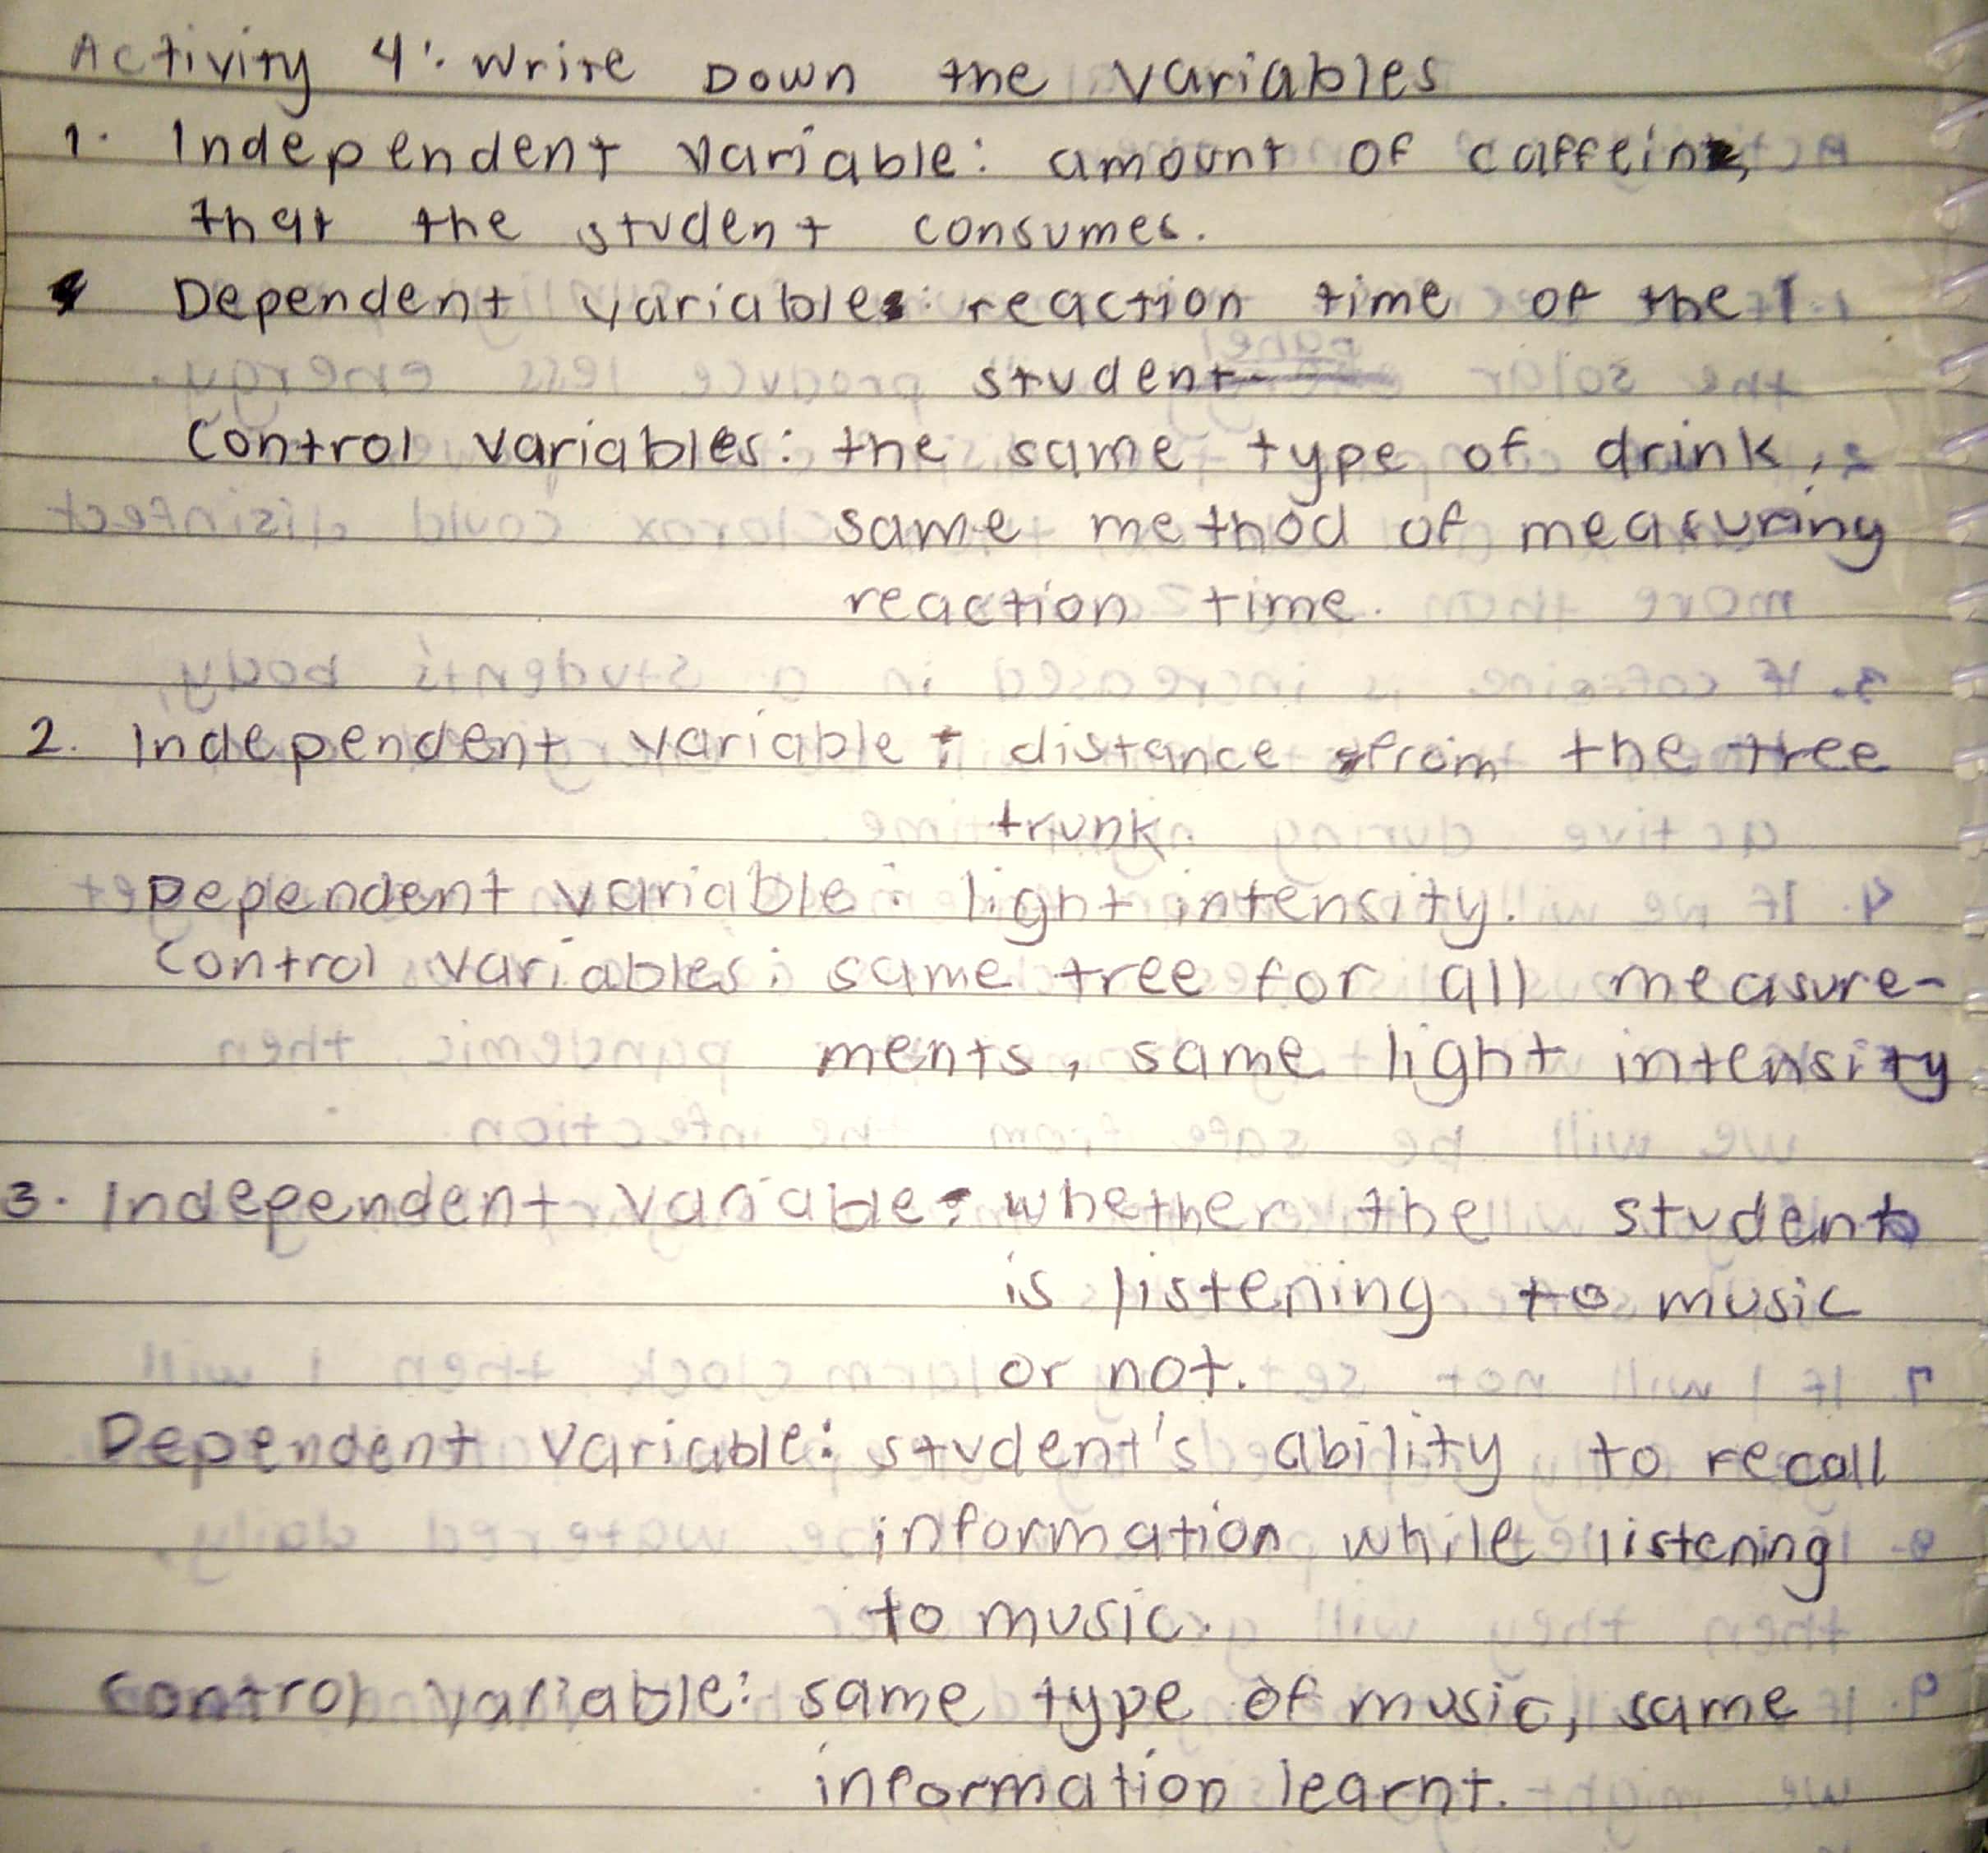 Activity 4: Write Down the Variables
1. Independent Variable: amount of caffeine,
that the student consumes.
Dependent variable: reaction time of the
student
Control variables: the same type of drink,
same method of measuring
reaction time.
2. Independent variable: distance from the tree
trunk.
Dependent variable: light intensity.
Control variables: same tree for all measure-
ments, same light intensity
3. Independent Variable: whether the student
is listening to music
or not.
Dependent Variable: student's ability to recall
information while listening
to music.
Control Variable: same type of music, same
information learnt.